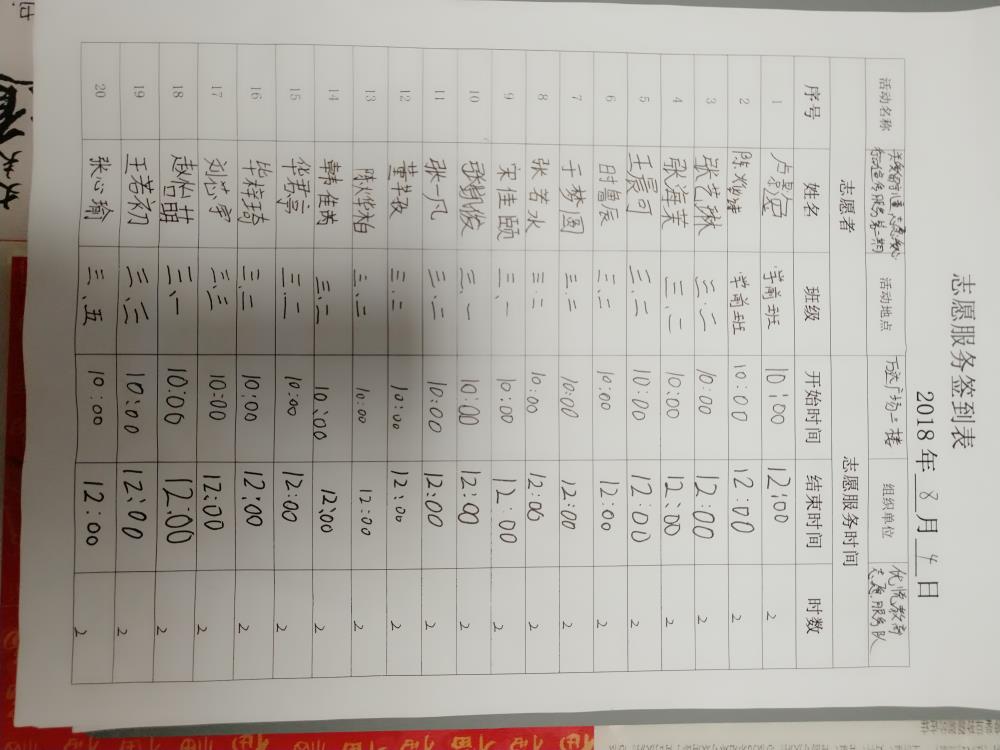 志愿服务签到表
2018年8月4日
活动名称 活动地点 万达广场二楼 组织单位 优悦教育志愿服务队
志愿者 志愿服务时间
序号 姓名 班级 开始时间 结束时间 时数
1 学前班 10:00 12:00 2
2 学前班 10:00 12:00 2
3 张艺琳 三.二 10:00 12:00 2
4 张海英 三.二 10:00 12:00 2
5 王晨司 三.二 10:00 12:00 2
6 三.二 10:00 12:00 2
7 于梦圆 三.二 10:00 12:00 2
8 张若水 三.二 10:00 12:00 2
9 宋佳颐 三.一 10:00 12:00 2
10 三.一 10:00 12:00 2
11 张一凡 三.二 10:00 12:00 2
12 三.二 10:00 12:00 2
13 陈烨柏 三.二 10:00 12:00 2
14 韩佳芮 三.二 10:00 12:00 2
15 三.二 10:00 12:00 2
16 毕梓琦 三.二 10:00 12:00 2
17 三.三 10:00 12:00 2
18 赵怡萌 三、一 10:00 12:00 2
19 王若初 三、三 10:00 12:00 2
20 张心瑜 三、五 10:00 12:00 2